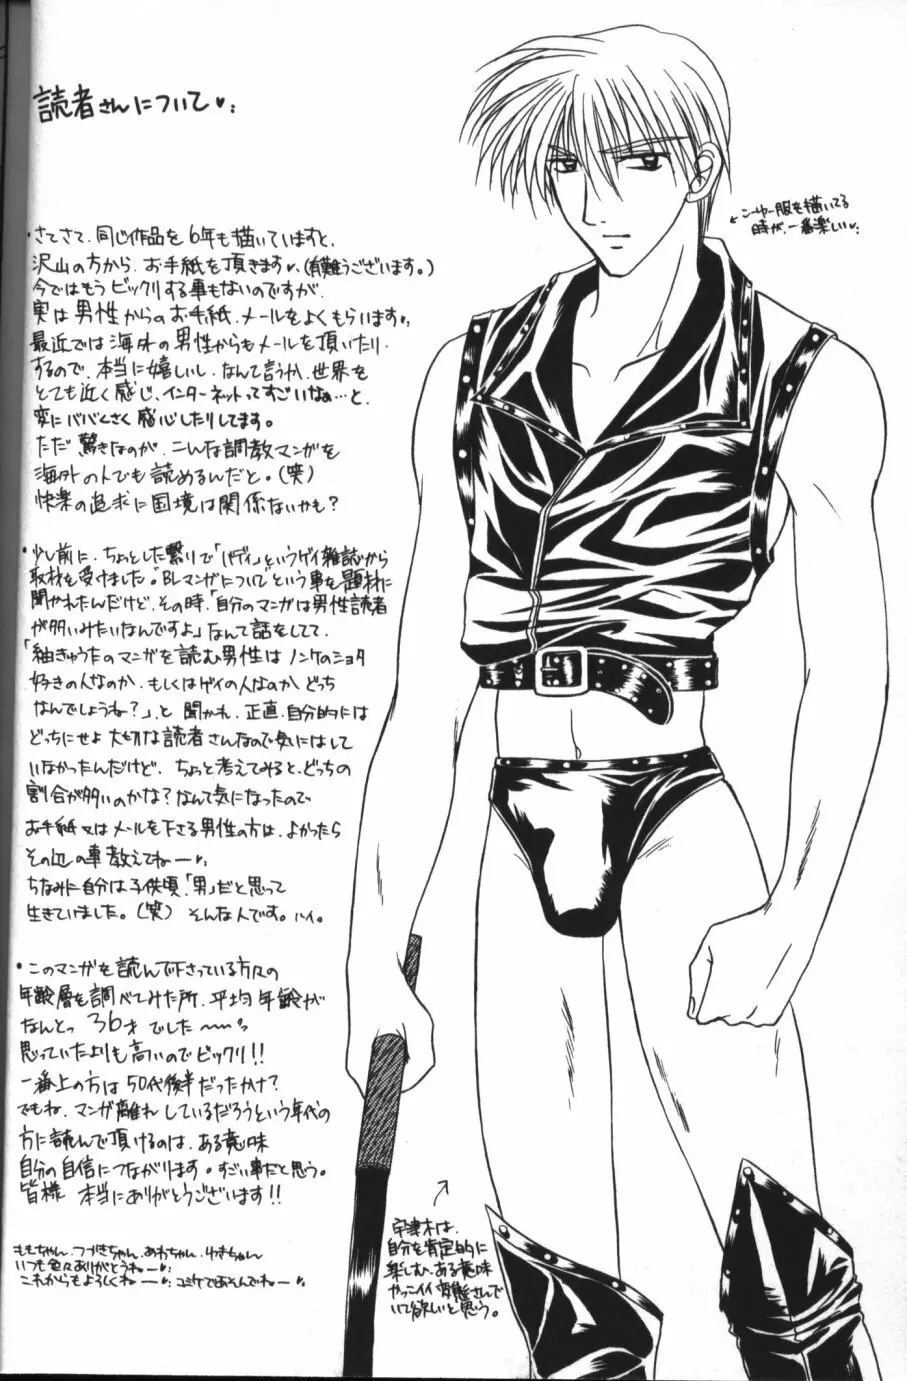 読者さんについて♥
・さてさて、同じ作品を6年も描いていますと、
沢山の方から、お手紙を頂きます♥(有難うございます。)
今ではもうビックリする事もないのですが、
実は男性からのお手紙、メールをよくもらいます♥
最近では海外の男性からもメールを頂いたり
するので、本当に嬉しいし、なんて言うか、世界を
とても近く感じ、インターネットってすごいなぁ…と、
変にババくさく感心したりしてます。
ただ驚きなのが、こんな調教マンガを
海外の人でも読めるんだと。(笑)
快楽の追求に国境は関係ないかも?
・少し前に、ちょっとした繋りで「バディ」というゲイ雑誌から
取材を受けました。"BLマンガについて"という事を題材に
聞かれたんだけど、その時、「自分のマンガは男性読者
が多いみたいなんですよ」なんて話をしてて、
「紬きゅうたのマンガを読む男性はノンケのショタ
好きの人なのか、もしくはゲイの人なのか、どっち
なんでしょうね?」と聞かれ、正直、自分的には
どっちにせよ大切な読者さんなので気にはして
いなかったんだけど、ちょっと考えてみると、どっちの
割合が多いのかな?なんて気になったので
お手紙又はメールを下さる男性の方は、よかったら
その辺の事教えてねー♥
ちなみに自分は子供頃、「男」だと思って
生きていました。(笑) そんな人です。ハイ。
・このマンガを読んで下さっている方々の
年齢層を調べてみた所、平均年齢が
なんとっ 36才でした〜〜
思っていたよりも高いのでビックリ!!
一番上の方は50代後半だったかな?
でもね、マンガ離れしているだろうという年代の
方に読んで頂けるのは、ある意味
自分の自信につながります。すごい事だと思う。
皆様 本当にありがとうございます!!
ももちゃん、つづきちゃん、あわちゃん、ゆきちゃん
いつも色々ありがとうねー♥
これからもよろしくねー♥コミケであそんでねー♥
←こーゆー服を描いてる
時が、一番楽しい♥
宇津木は、
自分を肯定的に
楽しむ、ある意味
やっこイイ変態さんで
いて欲しいと思う。